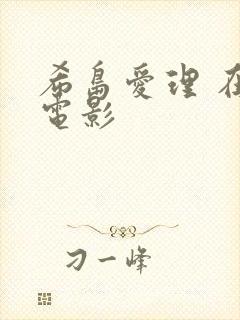 希島愛理 在
電影
刁一峰